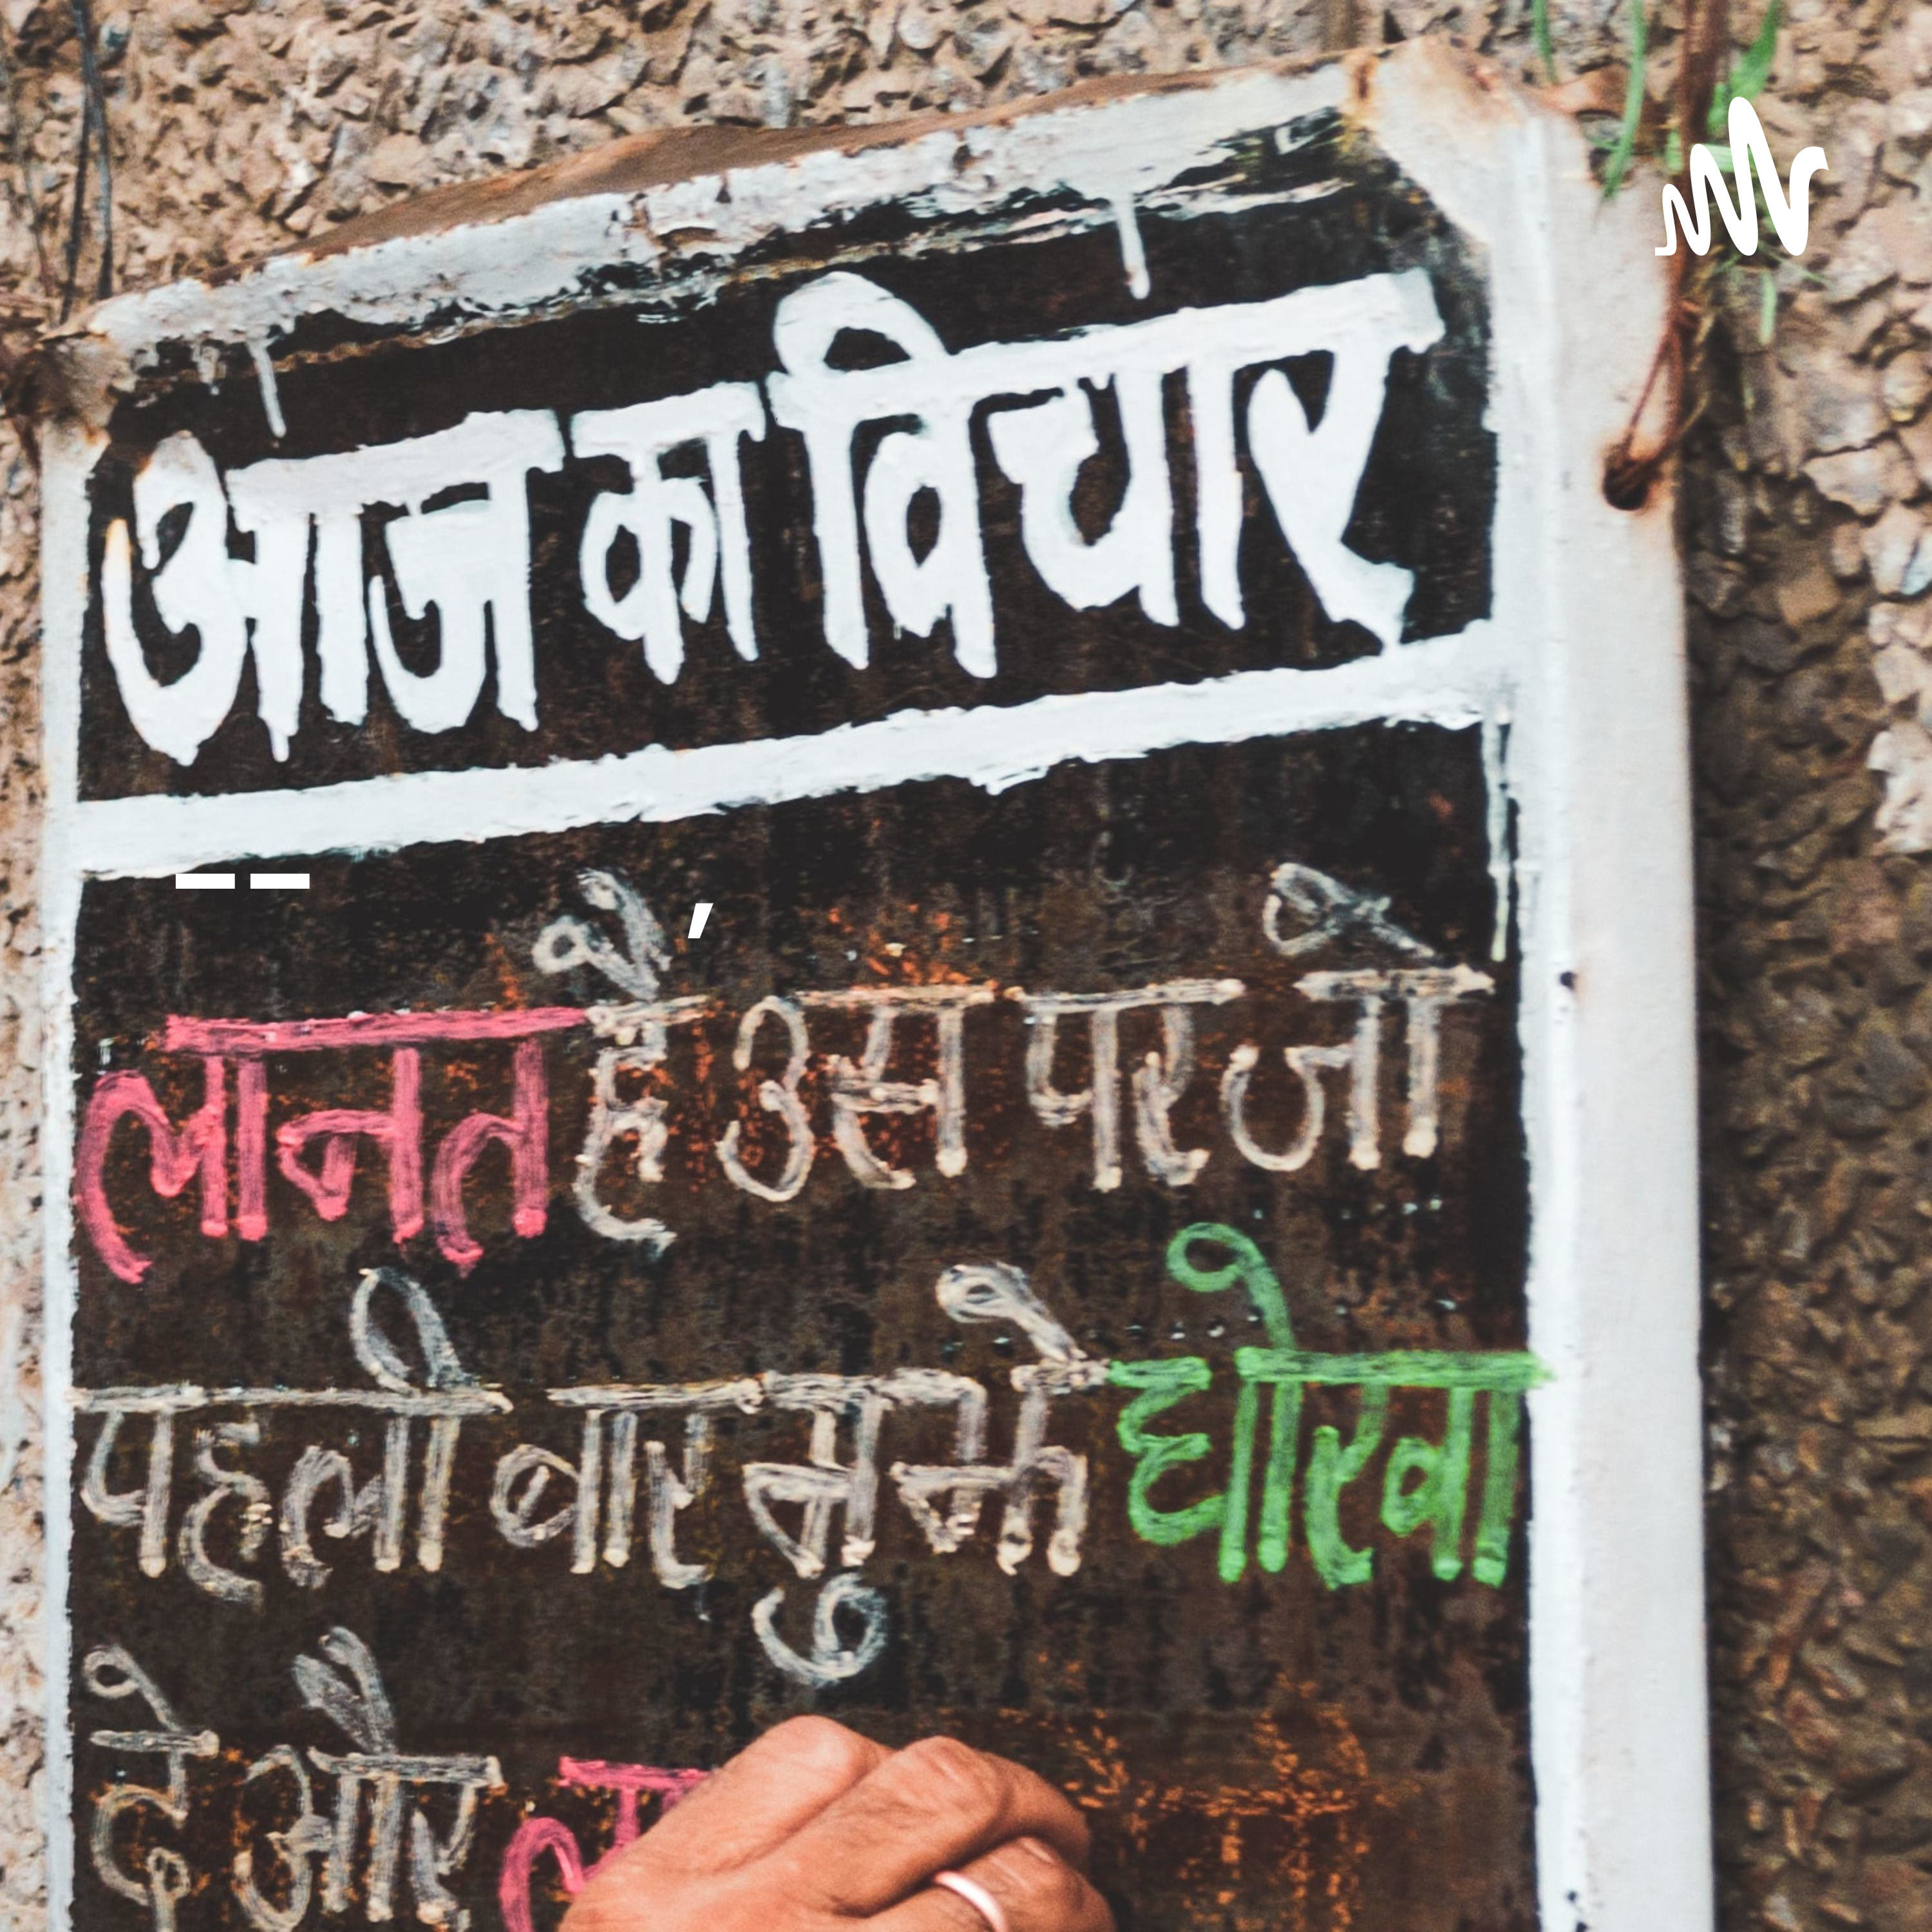 आज का विचार
-- ,
लानत है उस पर जो
पहली बार मुझे धोखा
दे और